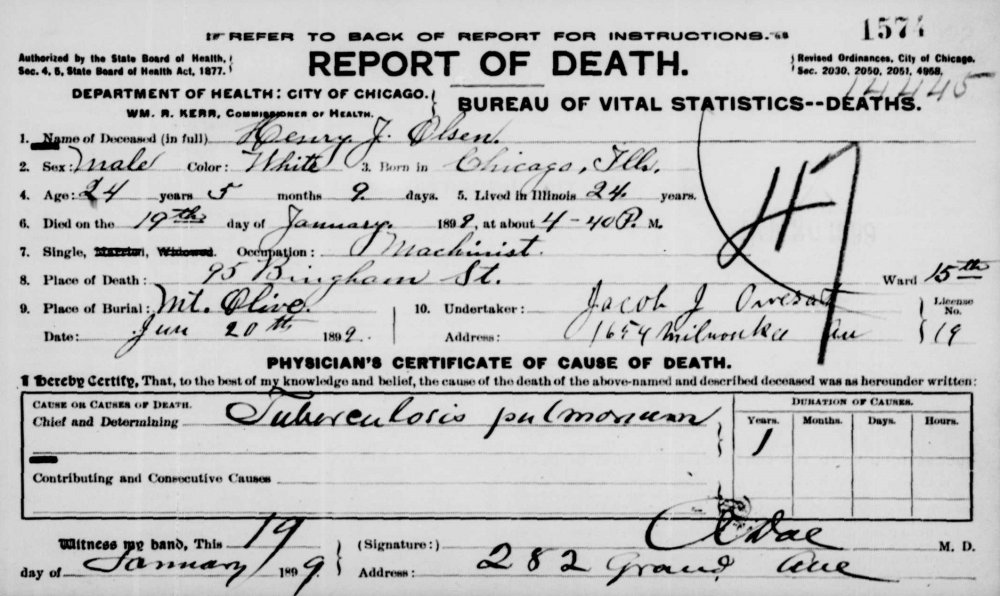 1574
REFER TO BACK OF REPORT FOR INSTRUCTIONS.
Authorized by the State Board of Health,
Sec. 4, 5, State Board of Health Act, 1877.
REPORT OF DEATH.
Revised Ordinances, City of Chicago.
Sec. 2030, 2050, 2051, 4968.
14445
DEPARTMENT OF HEALTH: CITY OF CHICAGO.
WM. R. KERR, COMMISSIONER OF HEALTH.
BUREAU OF VITAL STATISTICS--DEATHS.
47
1. Name of Deceased (in full) Henry J. Olsen.
2. Sex: Male Color: White 3. Born in Chicago, Ills.
4. Age: 24 years 5 months 9 days. 5. Lived in Illinois 24 years.
6. Died on the 19th day of January. 1899, at about 4-40 P. M.
7. Single, Married, Widowed. Occupation: Machinist.
8. Place of Death: 95 Bingham St. Ward 15th
9. Place of Burial: Mt. Olive. 10. Undertaker: Jacob J License No.
Date: Jan 20th 1899. Address: 1654 Milwaukee av 19
PHYSICIAN'S CERTIFICATE OF CAUSE OF DEATH.
I Hereby Certify, That, to the best of my knowledge and belief, the cause of the death of the above-named and described deceased was as hereunder written:
CAUSE OR CAUSES OF DEATH. DURATION OF CAUSES.
Chief and Determining Tuberculosis pulmonum Years. Months. Days. Hours.
1
Contributing and Consecutive Causes
Witness my hand, This 19 (Signature:) M. D.
day of January 1899. Address: 282 Grand Ave